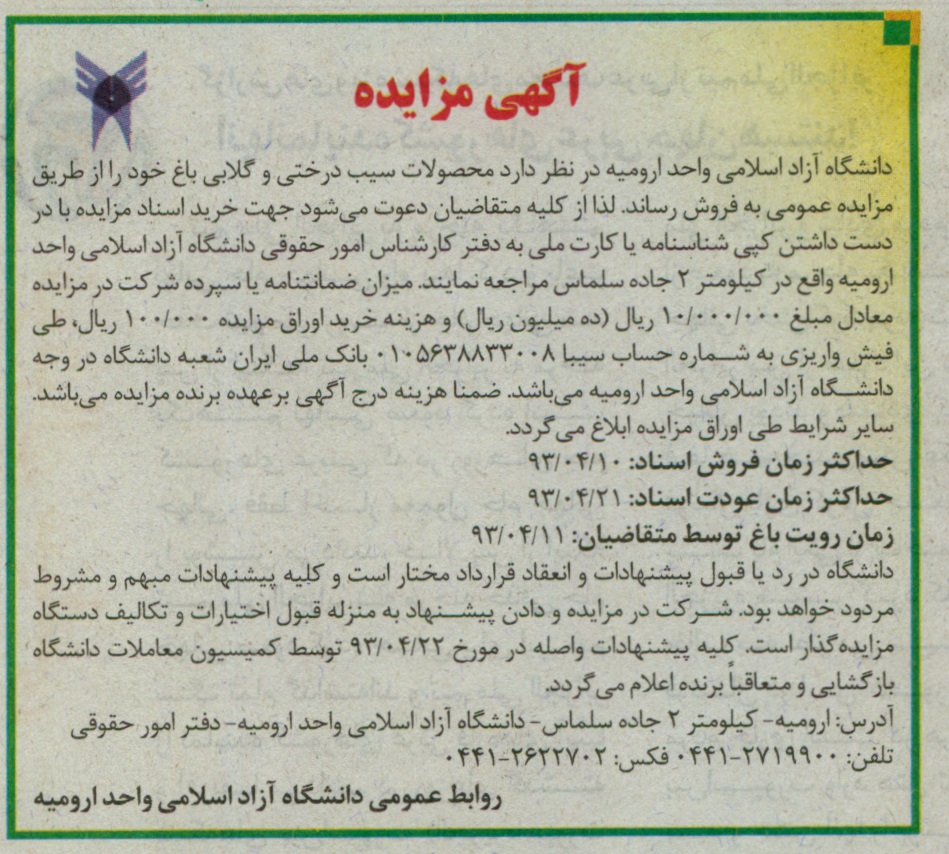 آگهی مزایده
دانشگاه آزاد اسلامی واحد ارومیه در نظر دارد محصولات سیب درختی و گلابی باغ خود را از طریق
مزایده عمومی به فروش رساند. لذا از کلیه متقاضیان دعوت می‌شود جهت خرید اسناد مزایده با در
دست داشتن کپی شناسنامه یا کارت ملی به دفتر کارشناس امور حقوقی دانشگاه آزاد اسلامی واحد
ارومیه واقع در کیلومتر ۲ جاده سلماس مراجعه نمایند. میزان ضمانتنامه یا سپرده شرکت در مزایده
معادل مبلغ ۱۰/۰۰۰/۰۰۰ ریال (ده میلیون ریال) و هزینه خرید اوراق مزایده ۱۰۰/۰۰۰ ریال، طی
فیش واریزی به شماره حساب سیبا ۰۱۰۵۶۳۸۸۳۳۰۰۸ بانک ملی ایران شعبه دانشگاه در وجه
دانشگاه آزاد اسلامی واحد ارومیه می‌باشد. ضمنا هزینه درج آگهی برعهده برنده مزایده می‌باشد.
سایر شرایط طی اوراق مزایده ابلاغ می‌گردد.
حداکثر زمان فروش اسناد: ۹۳/۰۴/۱۰
حداکثر زمان عودت اسناد: ۹۳/۰۴/۲۱
زمان رویت باغ توسط متقاضیان: ۹۳/۰۴/۱۱
دانشگاه در رد یا قبول پیشنهادات و انعقاد قرارداد مختار است و کلیه پیشنهادات مبهم و مشروط
مردود خواهد بود. شرکت در مزایده و دادن پیشنهاد به منزله قبول اختیارات و تکالیف دستگاه
مزایده‌گذار است. کلیه پیشنهادات واصله در مورخ ۹۳/۰۴/۲۲ توسط کمیسیون معاملات دانشگاه
بازگشایی و متعاقباً برنده اعلام می‌گردد.
آدرس: ارومیه- کیلومتر ۲ جاده سلماس- دانشگاه آزاد اسلامی واحد ارومیه- دفتر امور حقوقی
تلفن: ۲۷۱۹۹۰۰-۰۴۴۱ فکس: ۲۶۲۲۷۰۲-۰۴۴۱
روابط عمومی دانشگاه آزاد اسلامی واحد ارومیه